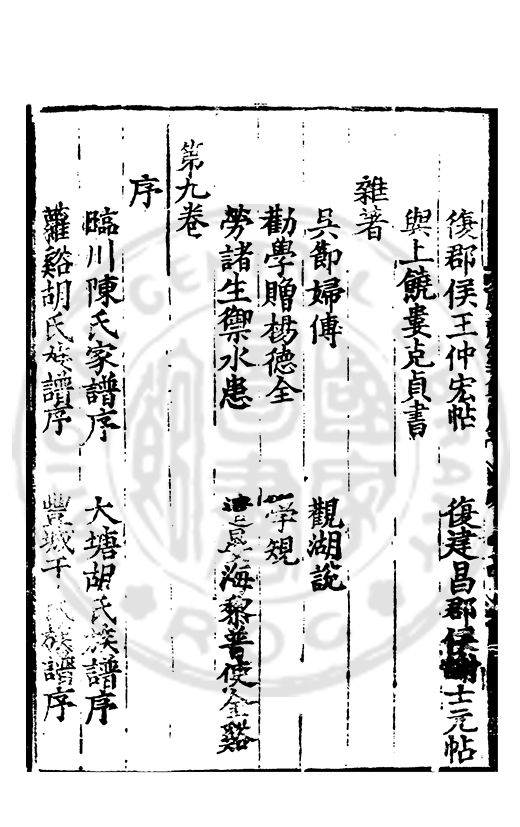 復郡侯王仲宏帖 復建昌郡侯謝士元帖
與上饒婁克貞書
雜著
吳節婦傳 觀湖說
勸學贈楊德全 學規
勞諸生禦水患 海黎普使金谿
第九卷
序
臨川陳氏家譜序 大塘胡氏族譜序
蘿谿胡氏族譜序 豐城 氏族譜序